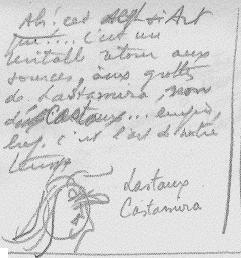 Ah! cet si Art
que.... c'est un
véritable retour aux
sources, aux grottes
de Lastamira, non
de Castaux... enfin,
bref, c'est l'art de notre
temps
Lastaux
Castamira